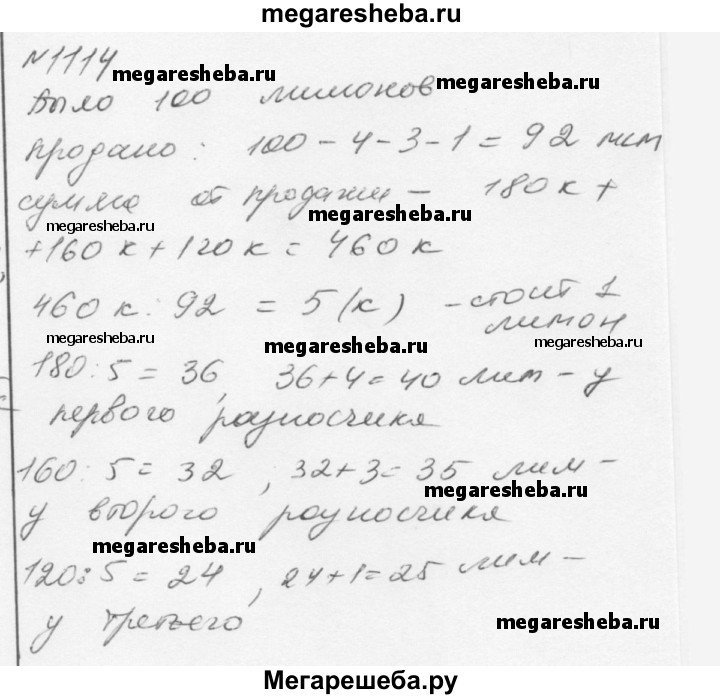 megaresheba.ru
№1114
megaresheba.ru
Было 100 лимонов
megaresheba.ru
Продано: 100 - 4 - 3 - 1 = 92 лим
сумма от продажи - 180 к +
megaresheba.ru
megaresheba.ru
+160 к + 120 к = 460 к
460 к : 92 = 5 (к) - стоит 1
лимон
megaresheba.ru
megaresheba.ru
megaresheba.ru
180 : 5 = 36, 36 + 4 = 40 лим - у
первого разносчика
160 : 5 = 32, 32 + 3 = 35 лим -
megaresheba.ru
у второго разносчика
megaresheba.ru
120 : 5 = 24, 24 + 1 = 25 лим -
у третьего
megaresheba.ru
Мегарешеба.ру